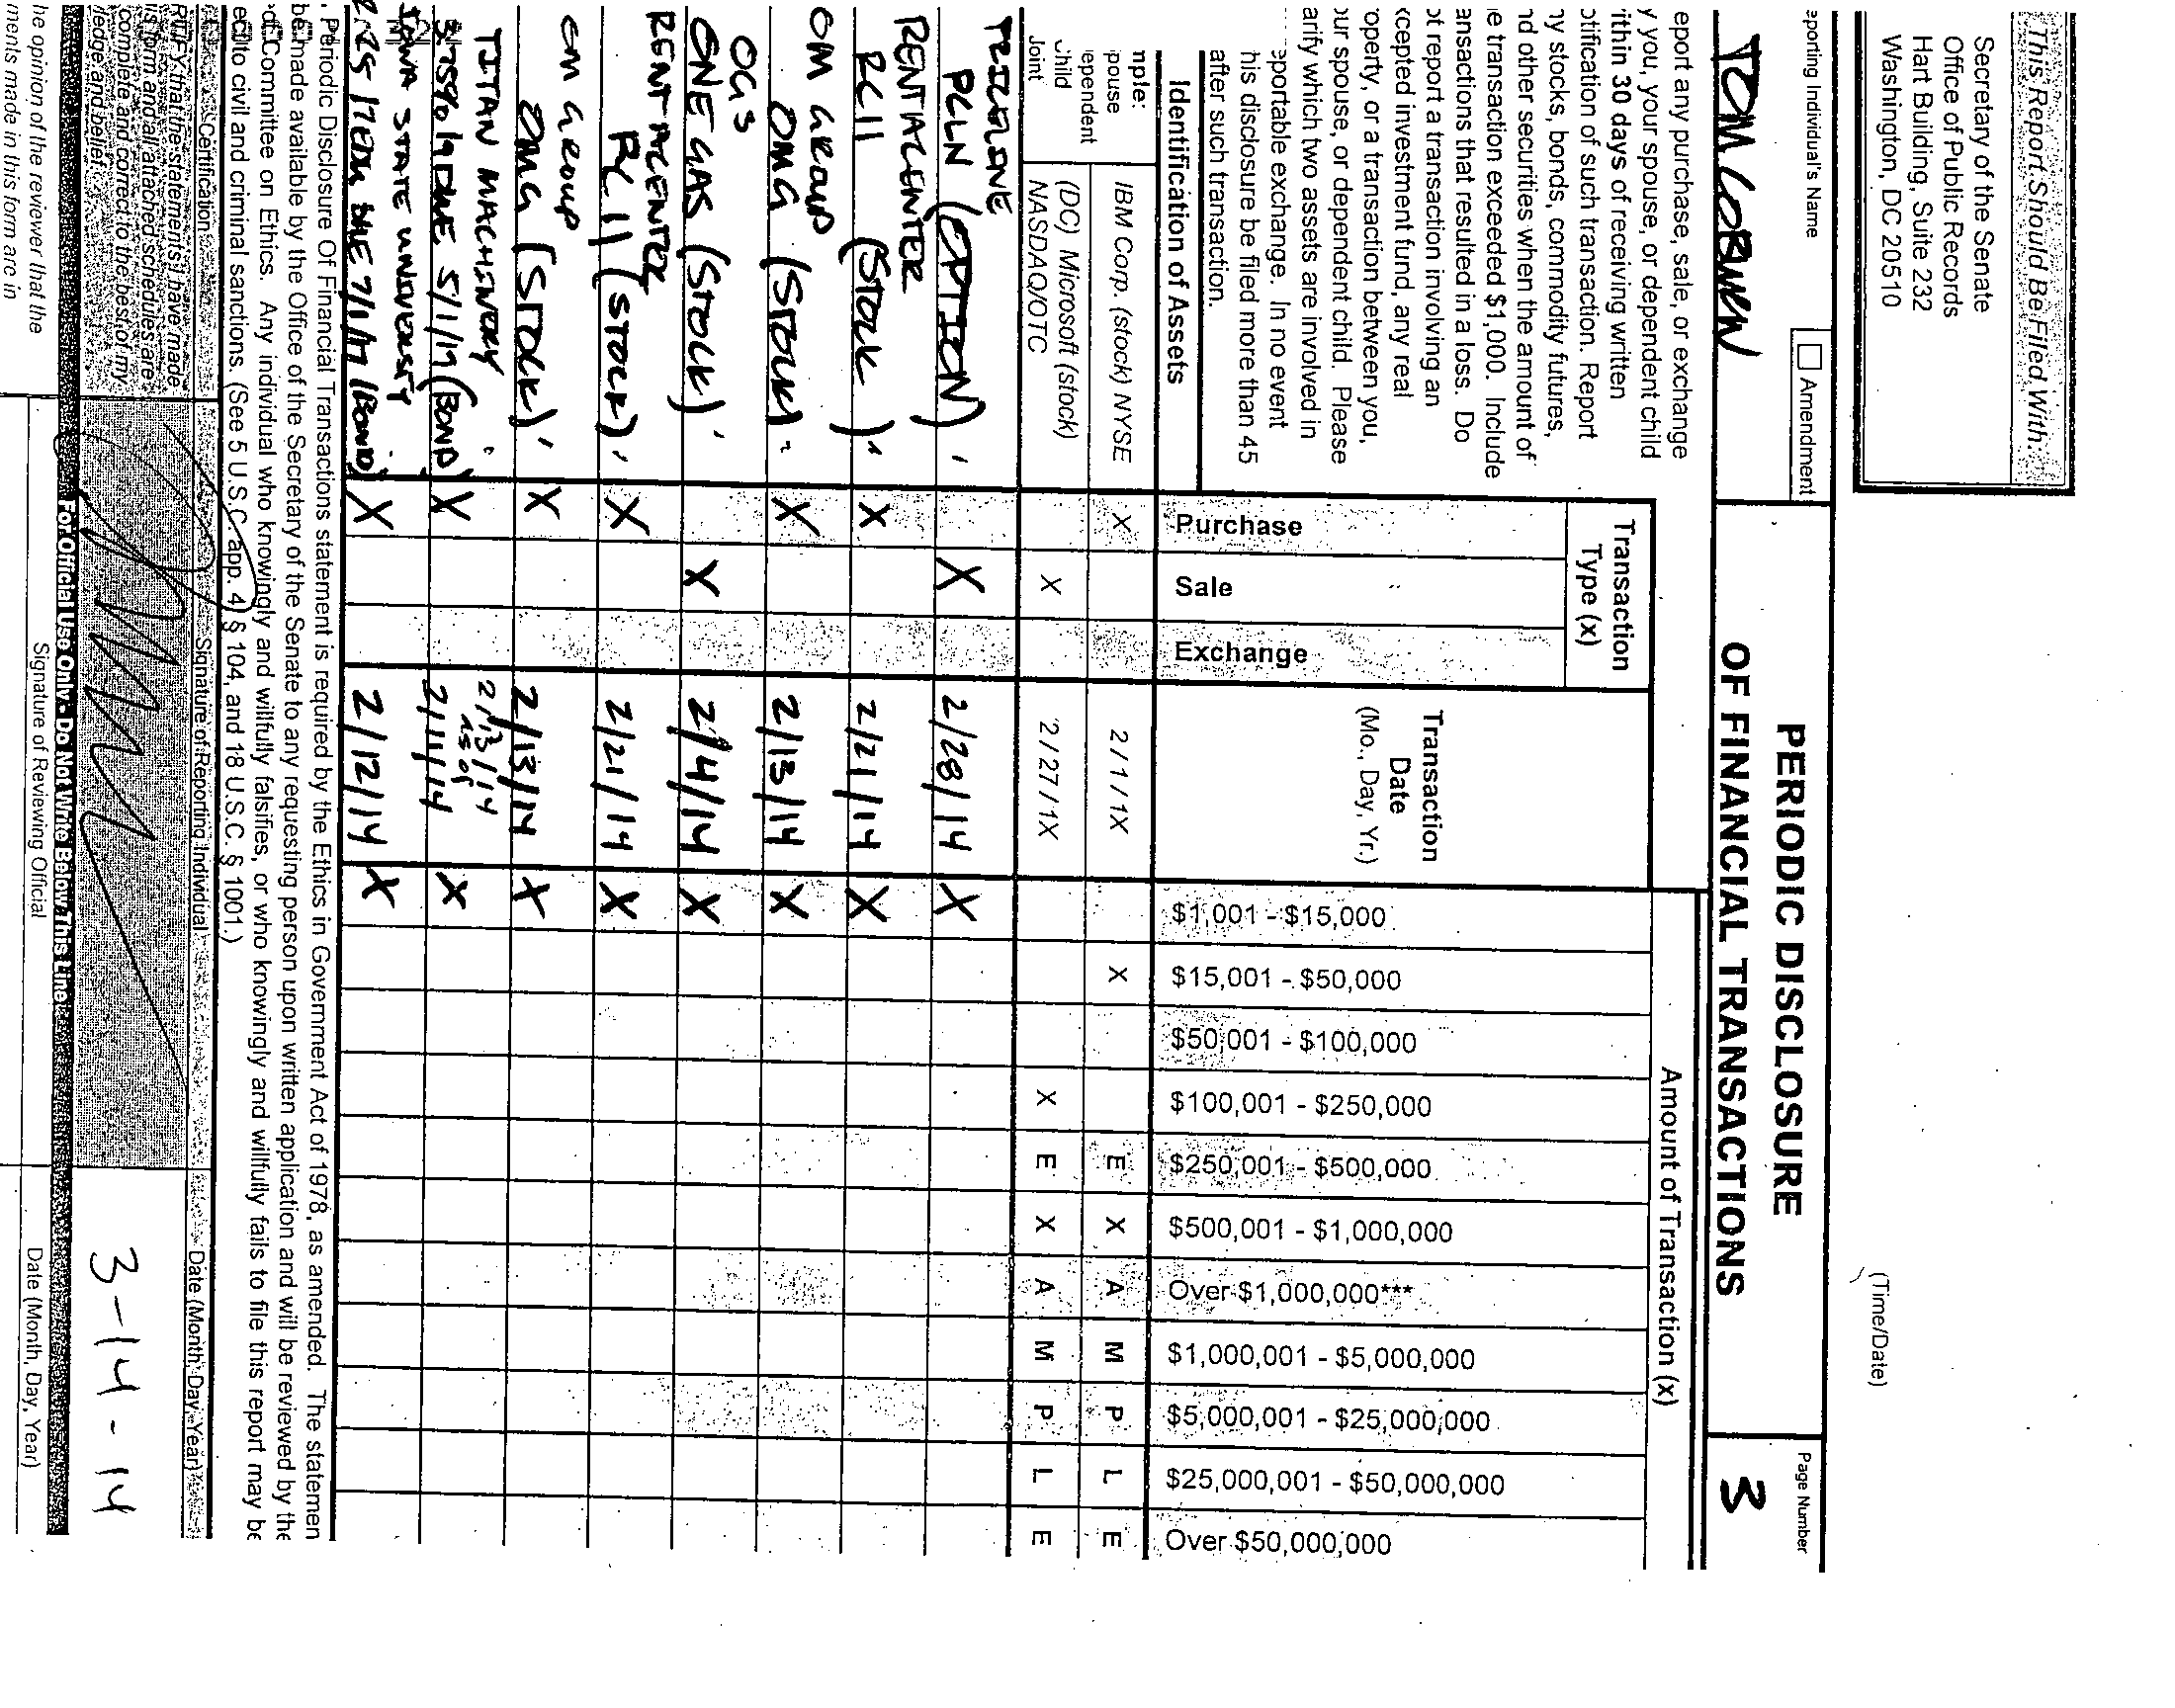 This Report Should Be Filed With:
Secretary of the Senate
Office of Public Records
Hart Building, Suite 232
Washington, DC 20510
(Time/Date)
eporting Individual's Name
Amendment
TOM COBURN
PERIODIC DISCLOSURE
OF FINANCIAL TRANSACTIONS
Page Number
3
eport any purchase, sale, or exchange
y you, your spouse, or dependent child
ithin 30 days of receiving written
otification of such transaction. Report
ny stocks, bonds, commodity futures,
nd other securities when the amount of
e transaction exceeded $1,000. Include
ansactions that resulted in a loss. Do
ot report a transaction involving an
xcepted investment fund, any real
operty, or a transaction between you,
our spouse, or dependent child. Please
arify which two assets are involved in
eportable exchange. In no event
his disclosure be filed more than 45
after such transaction.
Identification of Assets
Transaction
Type (x)
Purchase
Sale
Exchange
Transaction
Date
(Mo., Day, Yr.)
Amount of Transaction (x)
$1,001 - $15,000
$15,001 - $50,000
$50,001 - $100,000
$100,001 - $250,000
$250,001 - $500,000
$500,001 - $1,000,000
Over $1,000,000***
$1,000,001 - $5,000,000
$5,000,001 - $25,000,000
$25,000,001 - $50,000,000
Over $50,000,000
nple:
pouse
ependent
Child
Joint
IBM Corp. (stock) NYSE X 2/1/1X X E X A M P L E
(DC) Microsoft (stock)
NASDAQ/OTC X 2/27/1X X E X A M P L E
PRICELINE
PCLN (OPTION) X 2/28/14 X
RENTACENTER
RCII (STOCK) X 2/21/14 X
OM GROUP
OMG (STOCK) X 2/13/14 X
OGS
ONE GAS (STOCK) X 2/4/14 X
RENTACENTER
RCII (STOCK) X 2/21/14 X
OM GROUP
OMG (STOCK) X 2/13/14 X
TITAN MACHINERY 2/13/14
as of
3.75% 19 DUE 5/1/19 (BOND) X 2/11/14 X
IOWA STATE UNIVERSITY
DUE 7/1/17 (BOND) X 2/12/14 X
Periodic Disclosure Of Financial Transactions statement is required by the Ethics in Government Act of 1978, as amended. The statemen
be made available by the Office of the Secretary of the Senate to any requesting person upon written application and will be reviewed by the
Committee on Ethics. Any individual who knowingly and willfully falsifies, or who knowingly and willfully fails to file this report may be
to civil and criminal sanctions. (See 5 U.S.C. app. 4, § 104, and 18 U.S.C. § 1001.)
Certification
Signature of Reporting Individual
Date (Month, Day, Year)
that the statements I have made
form and all attached schedules are
complete and correct to the best of my
ledge and belief.
3-14-14
For Official Use Only - Do Not Write Below This Line
he opinion of the reviewer that the
ments made in this form are in
Signature of Reviewing Official
Date (Month, Day, Year)